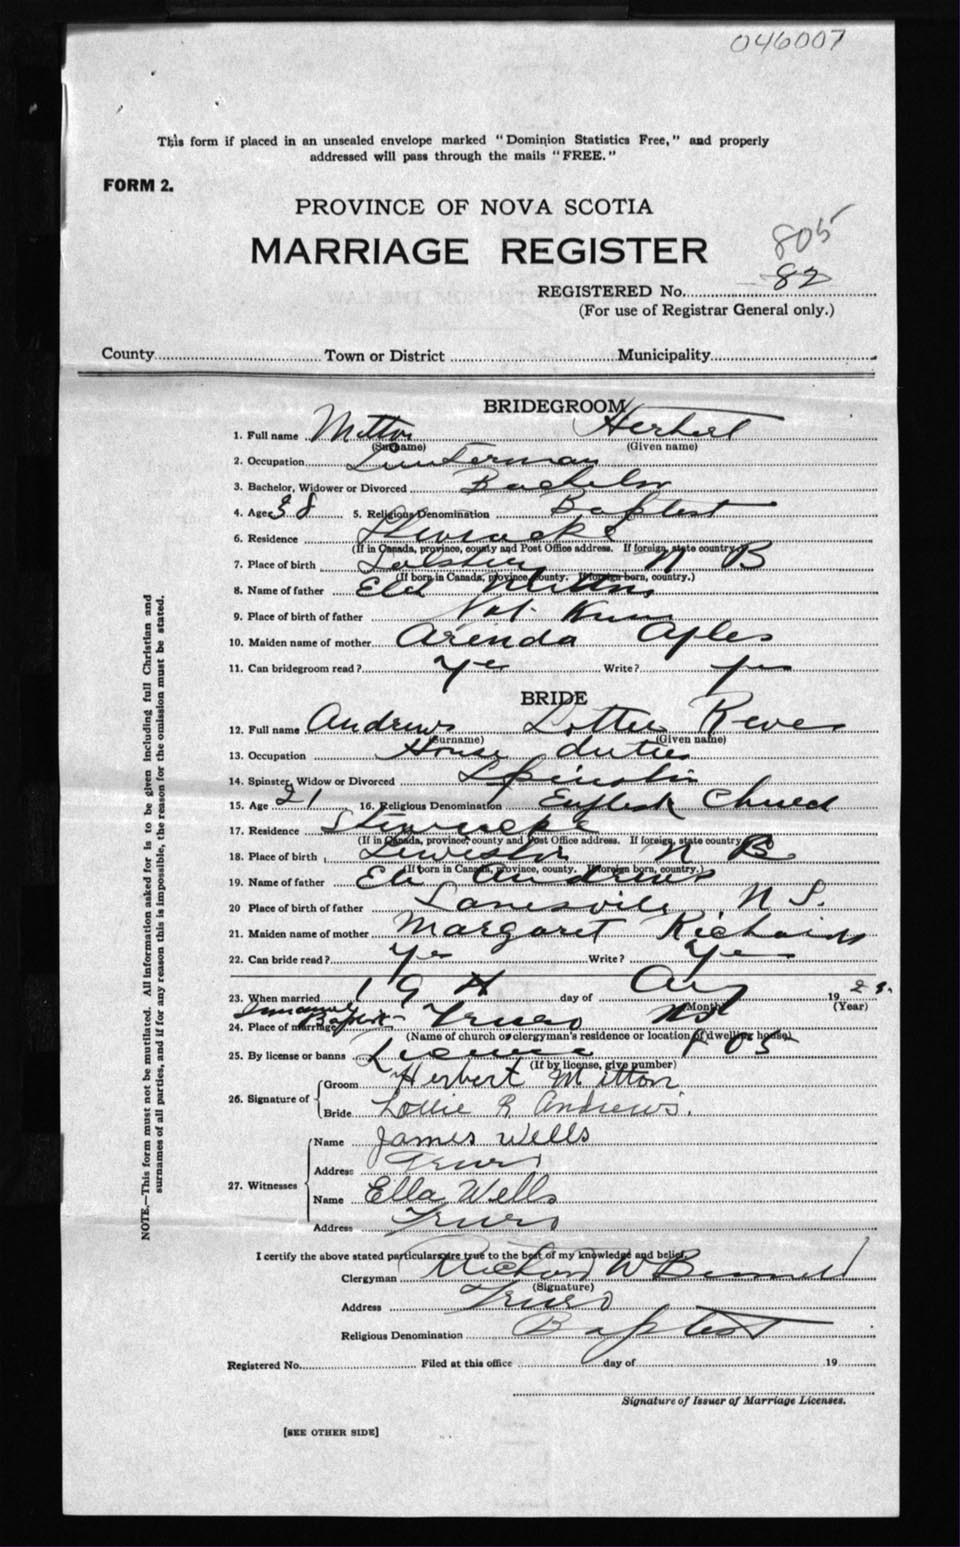 046007
This form if placed in an unsealed envelope marked "Dominion Statistics Free," and properly
addressed will pass through the mails "FREE."
FORM 2.
PROVINCE OF NOVA SCOTIA
MARRIAGE REGISTER
805
REGISTERED No. 82
(For use of Registrar General only.)
County Town or District Municipality
NOTE.—This form must not be mutilated. All information asked for is to be given including full Christian and
surnames of all parties, and if for any reason this is impossible, the reason for the omission must be stated.
BRIDEGROOM
1. Full name Mitton Herbert
(Surname) (Given name)
2. Occupation
3. Bachelor, Widower or Divorced Bachelor
4. Age 38 5. Religious Denomination Baptist
6. Residence
(If in Canada, province, county and Post Office address. If foreign, state country)
7. Place of birth N B
(If born in Canada, province, county. If foreign born, country.)
8. Name of father Mitton
9. Place of birth of father Not Known
10. Maiden name of mother Arenda
11. Can bridegroom read? Yes Write? Yes
BRIDE
12. Full name Andrews Lottie
(Surname) (Given name)
13. Occupation House duties
14. Spinster, Widow or Divorced Spinster
15. Age 21 16. Religious Denomination English Church
17. Residence
(If in Canada, province, county and Post Office address. If foreign, state country)
18. Place of birth N B
(If born in Canada, province, county. If foreign born, country.)
19. Name of father Andrews
20 Place of birth of father N S.
21. Maiden name of mother Margaret Richards
22. Can bride read? Yes Write? Yes
23. When married 19th day of Aug 19
(Month) (Year)
24. Place of marriage Immanuel Baptist Truro N S
(Name of church or clergyman's residence or location of dwelling house)
25. By license or banns License
(If by license, give number)
26. Signature of Groom Herbert Mitton
Bride Lottie R Andrews.
27. Witnesses Name James Wells
Address Truro
Name Ella Wells
Address Truro
I certify the above stated particulars are true to the best of my knowledge and belief.
Clergyman Richard W Bennett
(Signature)
Address Truro
Religious Denomination Baptist
Registered No. Filed at this office day of 19
Signature of Issuer of Marriage Licenses.
[SEE OTHER SIDE]